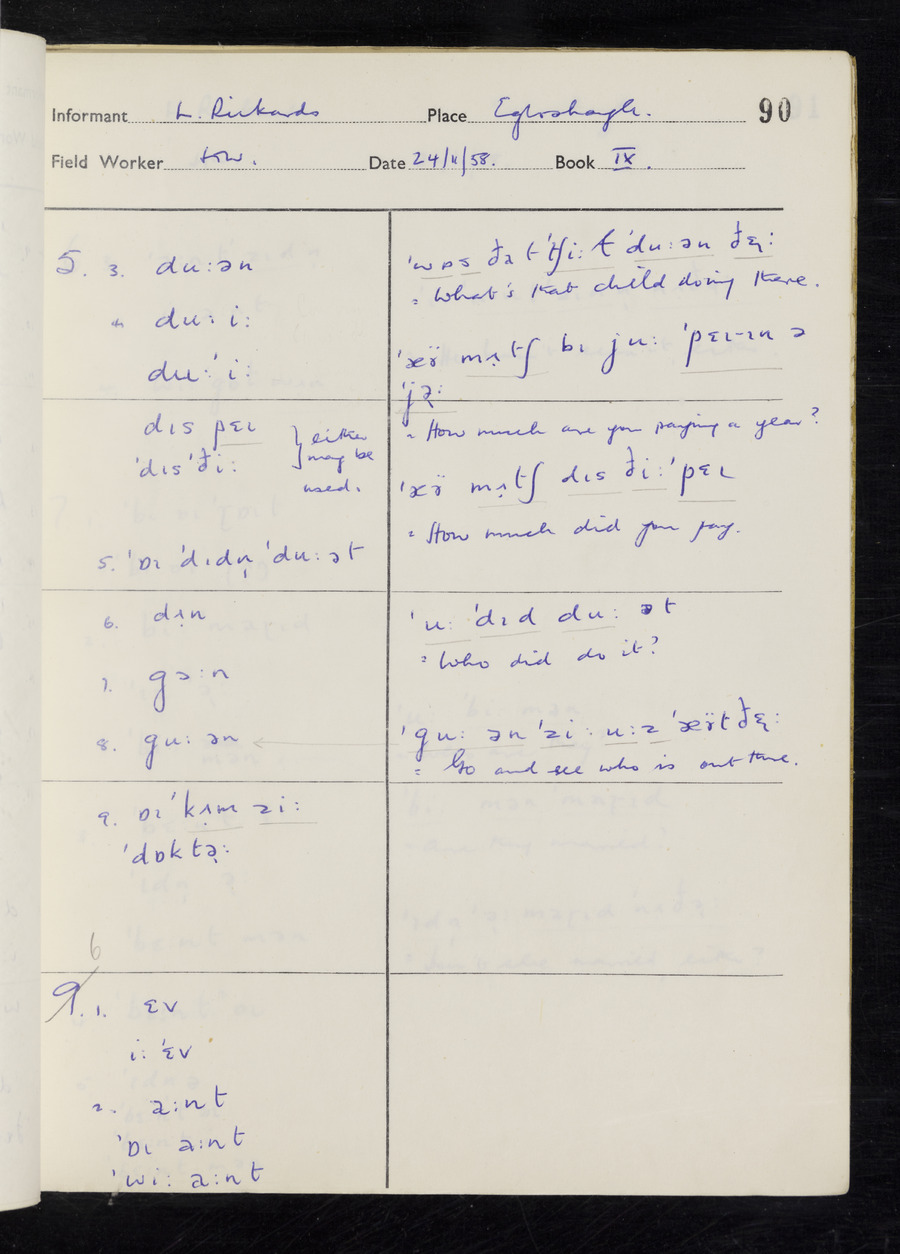 Informant L. Rickards Place Egloshayle. 90
Field Worker Date 24/11/58. Book IX.
5. 3. du:ən
du: i:
du:ˈ i:
dɪs pɛɪ
ˈdɪsˈði:
} either may be used.
5. ˈɒɪ ˈdɪdn̩ ˈdu:ət
6. dʌ̣n
7. gɔ:n
8. gu: ən
9. ɒɪˈkʌ̣m zi:
ˈdɒktə̣:
6
9. 1. ɛv
i: ˈɛv
2. a:nt
ˈɒɪ a:nt
ˈwi: a:nt
ˈwɒs ðat ˈtʃi:ɫ ˈdu:ən ðɛ̣:
= What's that child doing there.
ˈæÿ mʌ̣tʃ bɪ ju: ˈpɛɪ-ɪn ə
ˈjə̣:
= How much are you paying a year?
ˈæÿ mʌ̣tʃ dɪs ði:ˈpɛɪ
= How much did you pay.
ˈu: ˈdɪd du: ət
= Who did do it?
ˈgu: ən ˈzi: u:z ˈæÿt ðɛ̣:
= Go and see who is out there.